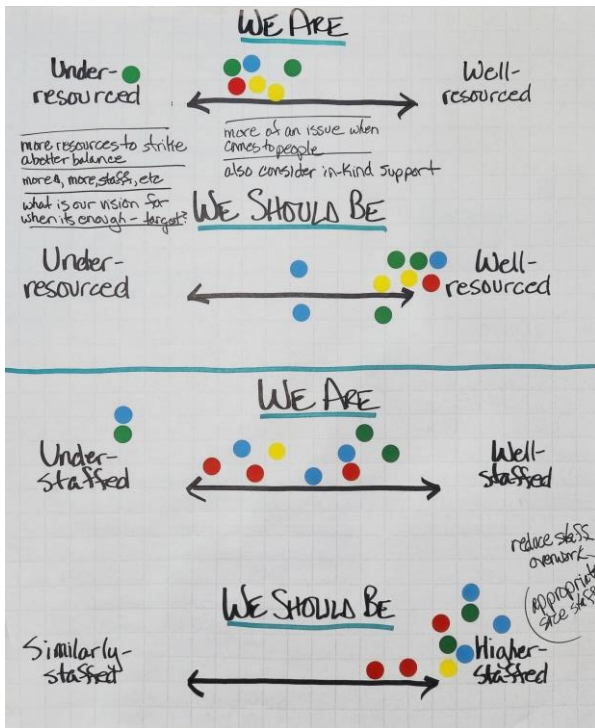 WE ARE
Under-
resourced
Well-
resourced
more resources to strike
a better balance
more $, more, staff, etc
what is our vision for
when its enough - target?
more of an issue when
comes to people
also consider in-kind support
WE SHOULD BE
Under-
resourced
Well-
resourced
WE ARE
Under-
staffed
Well-
staffed
reduce staff
overwork
appropriate
size staff
WE SHOULD BE
Similarly-
staffed
Higher-
staffed